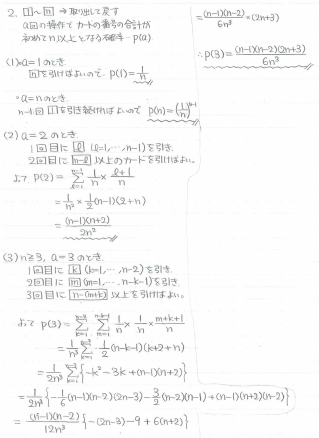 2. 1~n ⇒ 取り出して戻す
a回の操作で カードの番号の合計が
初めてn以上となる確率…p(a)
(1)・a=1のとき
nを引けばよいので、p(1)=1/n
・a=nのとき
n-1回 1を引き続ければよいので p(n)=(1/n)^{n-1}
(2) a=2のとき
1回目に l (l=1,…,n-1)を引き
2回目に n-l 以上のカードを引けばよい。
よって p(2)= Σ_{l=1}^{n-1} 1/n × (l+1)/n
= 1/n² × 1/2 (n-1)(2+n)
= (n-1)(n+2)/2n²
(3) n≧3, a=3のとき
1回目に k (k=1,…,n-2)を引き
2回目に m (m=1,…,n-k-1)を引き
3回目に n-(m+k) 以上を引けばよい。
よって p(3)= Σ_{k=1}^{n-2} Σ_{m=1}^{n-k-1} 1/n × 1/n × (m+k+1)/n
= 1/n³ Σ_{k=1}^{n-2} 1/2 (n-k-1)(k+2+n)
= 1/2n³ Σ_{k=1}^{n-2} {-k²-3k+(n-1)(n+2)}
= 1/2n³ {-1/6 (n-1)(n-2)(2n-3) - 3/2 (n-2)(n-1) + (n-1)(n+2)(n-2)}
= (n-1)(n-2)/12n³ {-(2n-3)-9+6(n+2)}
= (n-1)(n-2)/6n³ × (2n+3)
∴ p(3)= (n-1)(n-2)(2n+3)/6n³